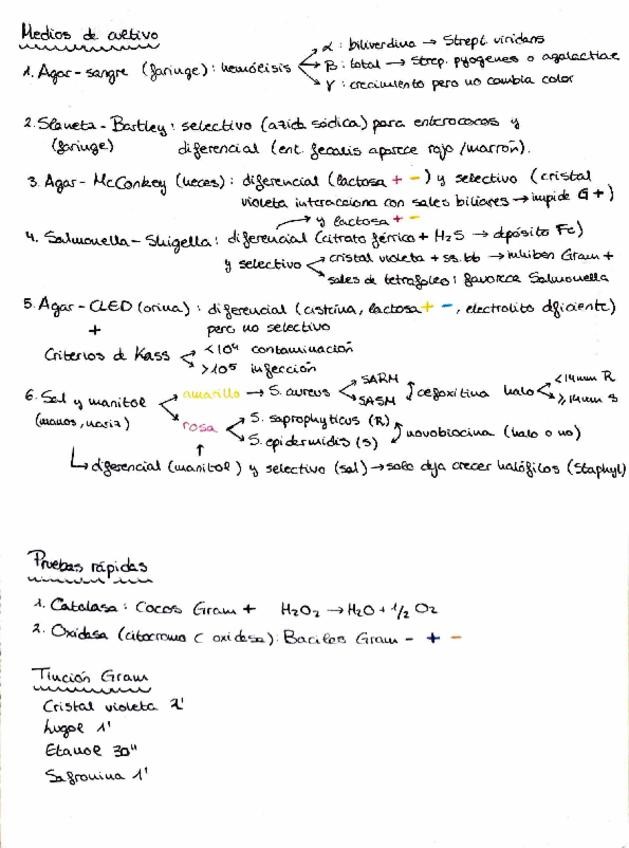 Medios de cultivo
α: biliverdina → Strept. viridans
1. Agar-sangre (faringe): hemólisis β: total → Strep. pyogenes o agalactiae
γ: crecimiento pero no cambia color
2. Slanetz-Bartley: selectivo (azida sódica) para enterococos y
(faringe) diferencial (ent. fecalis aparece rojo/marrón).
3. Agar-McConkey (heces): diferencial (lactosa + -) y selectivo (cristal
violeta interacciona con sales biliares → impide G+)
y lactosa + -
4. Salmonella-Shigella: diferencial (citrato férrico + H2S → depósito Fe)
y selectivo cristal violeta + ss.bb → inhiben Gram +
sales de tetrafoleo: favorece Salmonella
5. Agar-CLED (orina): diferencial (cistina, lactosa + -, electrolito dficiente)
+ pero no selectivo
Criterios de Kass <10⁴ contaminación
>10⁵ infección
6. Sal y manitol amarillo → S. aureus SARM SASM cefoxitina halo <14mm R
(manos, nariz) ≥14mm S
rosa S. saprophyticus (R)
S. epidermidis (S) novobiocina (halo o no)
diferencial (manitol) y selectivo (sal) → solo deja crecer halófilos (Staphyl)
Pruebas rápidas
1. Catalasa: Cocos Gram + H2O2 → H2O + 1/2 O2
2. Oxidasa (citocromo C oxidasa): Bacilos Gram - + -
Tinción Gram
Cristal violeta 2'
Lugol 1'
Etanol 30"
Safronina 1'